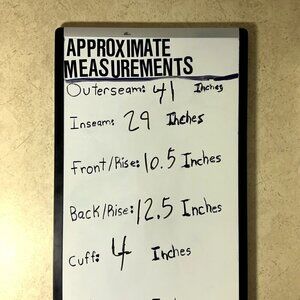 APPROXIMATE
MEASUREMENTS
Outerseam: 41 Inches
Inseam: 29 Inches
Front/Rise: 10.5 Inches
Back/Rise: 12.5 Inches
Cuff: 4 Inches